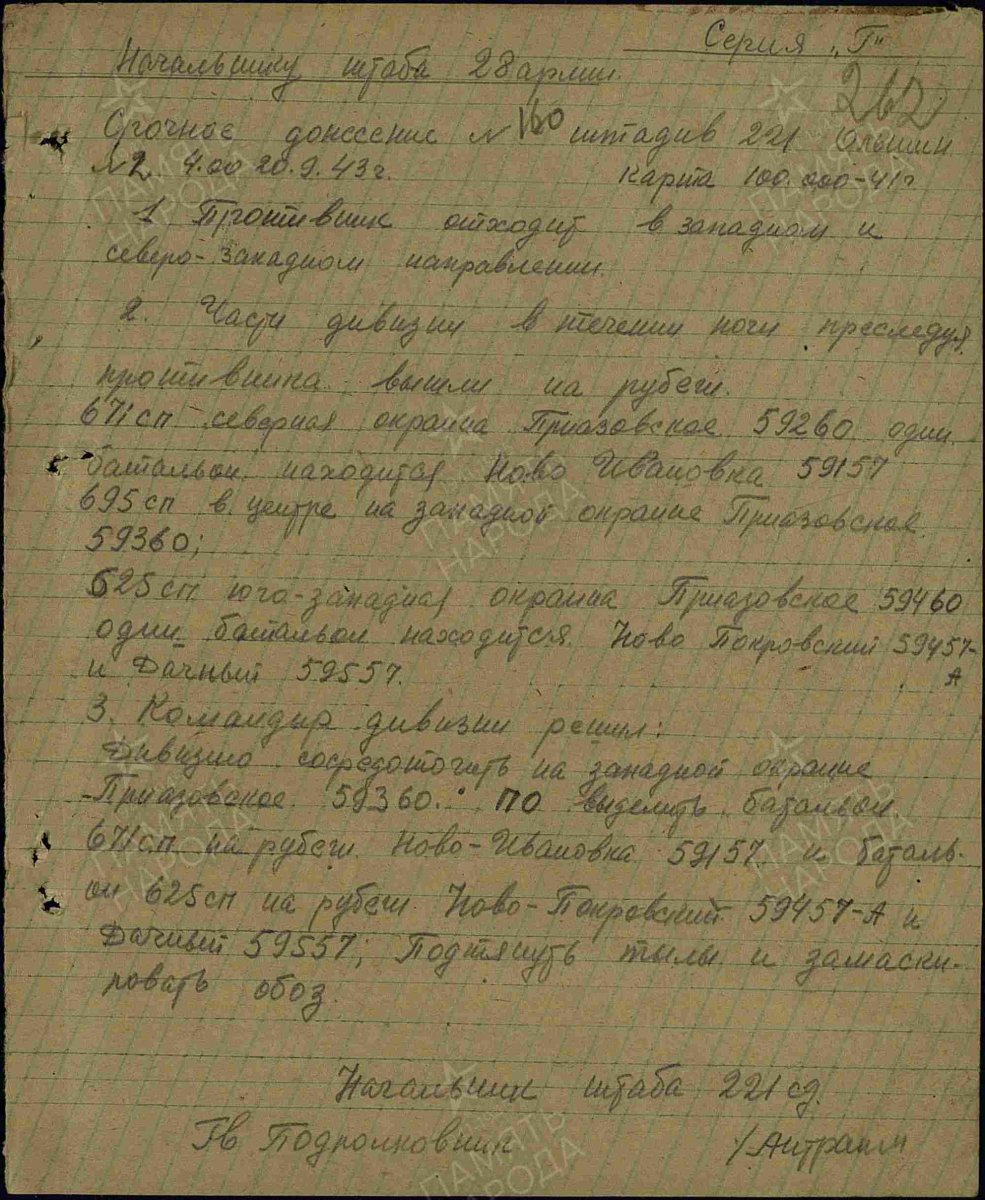 Серия „Г"
262
Начальнику штаба 28 армии.
Срочное донесение № 160 штадив 221
№2. 4.00 20.9.43г. Карта 100.000-41г
1 Противник отходит в западном и
северо-западном направлении.
2. Части дивизии в течении ночи преследуя
противника вышли на рубеж.
671сп северная окраина Приазовское 59260 один
батальон находится Ново Ивановка 59157
695сп в центре на западной окраине Приазовское
59360;
625сп юго-западная окраина Приазовское 59460
один батальон находится Ново Покровский 59457-
А
и Дачный 59557.
3. Командир дивизии решил:
Дивизию сосредоточить на западной окраине
Приазовское 59360. ПО выделить батальон
671сп на рубеж Ново-Ивановка 59157 и баталь-
он 625сп на рубеж Ново-Покровский 59457-А и
Дачный 59557; Подтянуть тылы и замаски-
ровать обоз.
Начальник штаба 221 сд.
Гв Подполковник
ПАМЯТЬ
НАРОДА